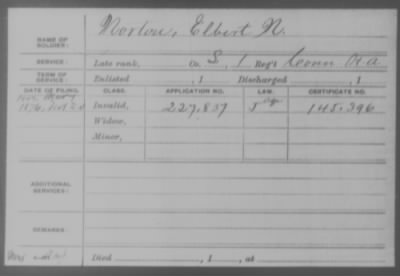 NAME OF SOLDIER: Norton, Elbert N.
SERVICE: Late rank, Co. S, 1 Reg't Conn H A
TERM OF SERVICE: Enlisted , 1 Discharged , 1
DATE OF FILING. CLASS. APPLICATION NO. LAW. CERTIFICATE NO.
1876, Invalid, 227,837 145,396
Widow,
Minor,
ADDITIONAL SERVICES:
REMARKS:
Died , 1 , at